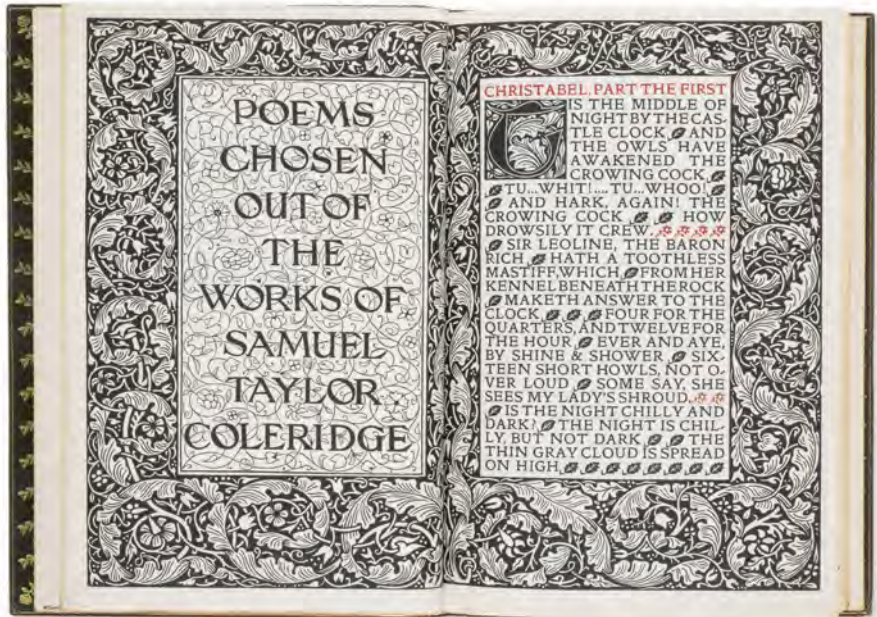 POEMS
CHOSEN
OUT OF
THE
WORKS OF
SAMUEL
TAYLOR
COLERIDGE
CHRISTABEL, PART THE FIRST
TIS THE MIDDLE OF
NIGHT BY THE CAS-
TLE CLOCK AND
THE OWLS HAVE
AWAKENED THE
CROWING COCK
TU...WHIT!....TU...WHOO!
AND HARK, AGAIN! THE
CROWING COCK HOW
DROWSILY IT CREW.
SIR LEOLINE, THE BARON
RICH, HATH A TOOTHLESS
MASTIFF, WHICH FROM HER
KENNEL BENEATH THE ROCK
MAKETH ANSWER TO THE
CLOCK FOUR FOR THE
QUARTERS, AND TWELVE FOR
THE HOUR EVER AND AYE,
BY SHINE & SHOWER SIX-
TEEN SHORT HOWLS, NOT O-
VER LOUD SOME SAY, SHE
SEES MY LADY'S SHROUD.
IS THE NIGHT CHILLY AND
DARK? THE NIGHT IS CHIL-
LY, BUT NOT DARK THE
THIN GRAY CLOUD IS SPREAD
ON HIGH